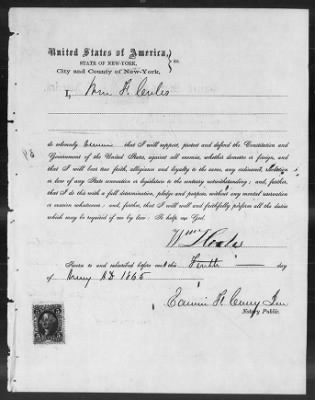 United States of America,
STATE OF NEW-YORK, } ss.
City and County of New-York,
I, Wm H.
do solemnly that I will support, protect and defend the Constitution and
Government of the United States, against all enemies, whether domestic or foreign, and
that I will bear true faith, allegiance and loyalty to the same, any ordinance, resolution
or law of any State convention or legislature to the contrary notwithstanding; and, further,
that I do this with a full determination, pledge and purpose, without any mental reservation
or evasion whatsoever; and, further, that I will well and faithfully perform all the duties
which may be required of me by law: So help me God.
Wm
Sworn to and subscribed before me this day
of A.D. 1865
Edwin F. Corey Jun
Notary Public.